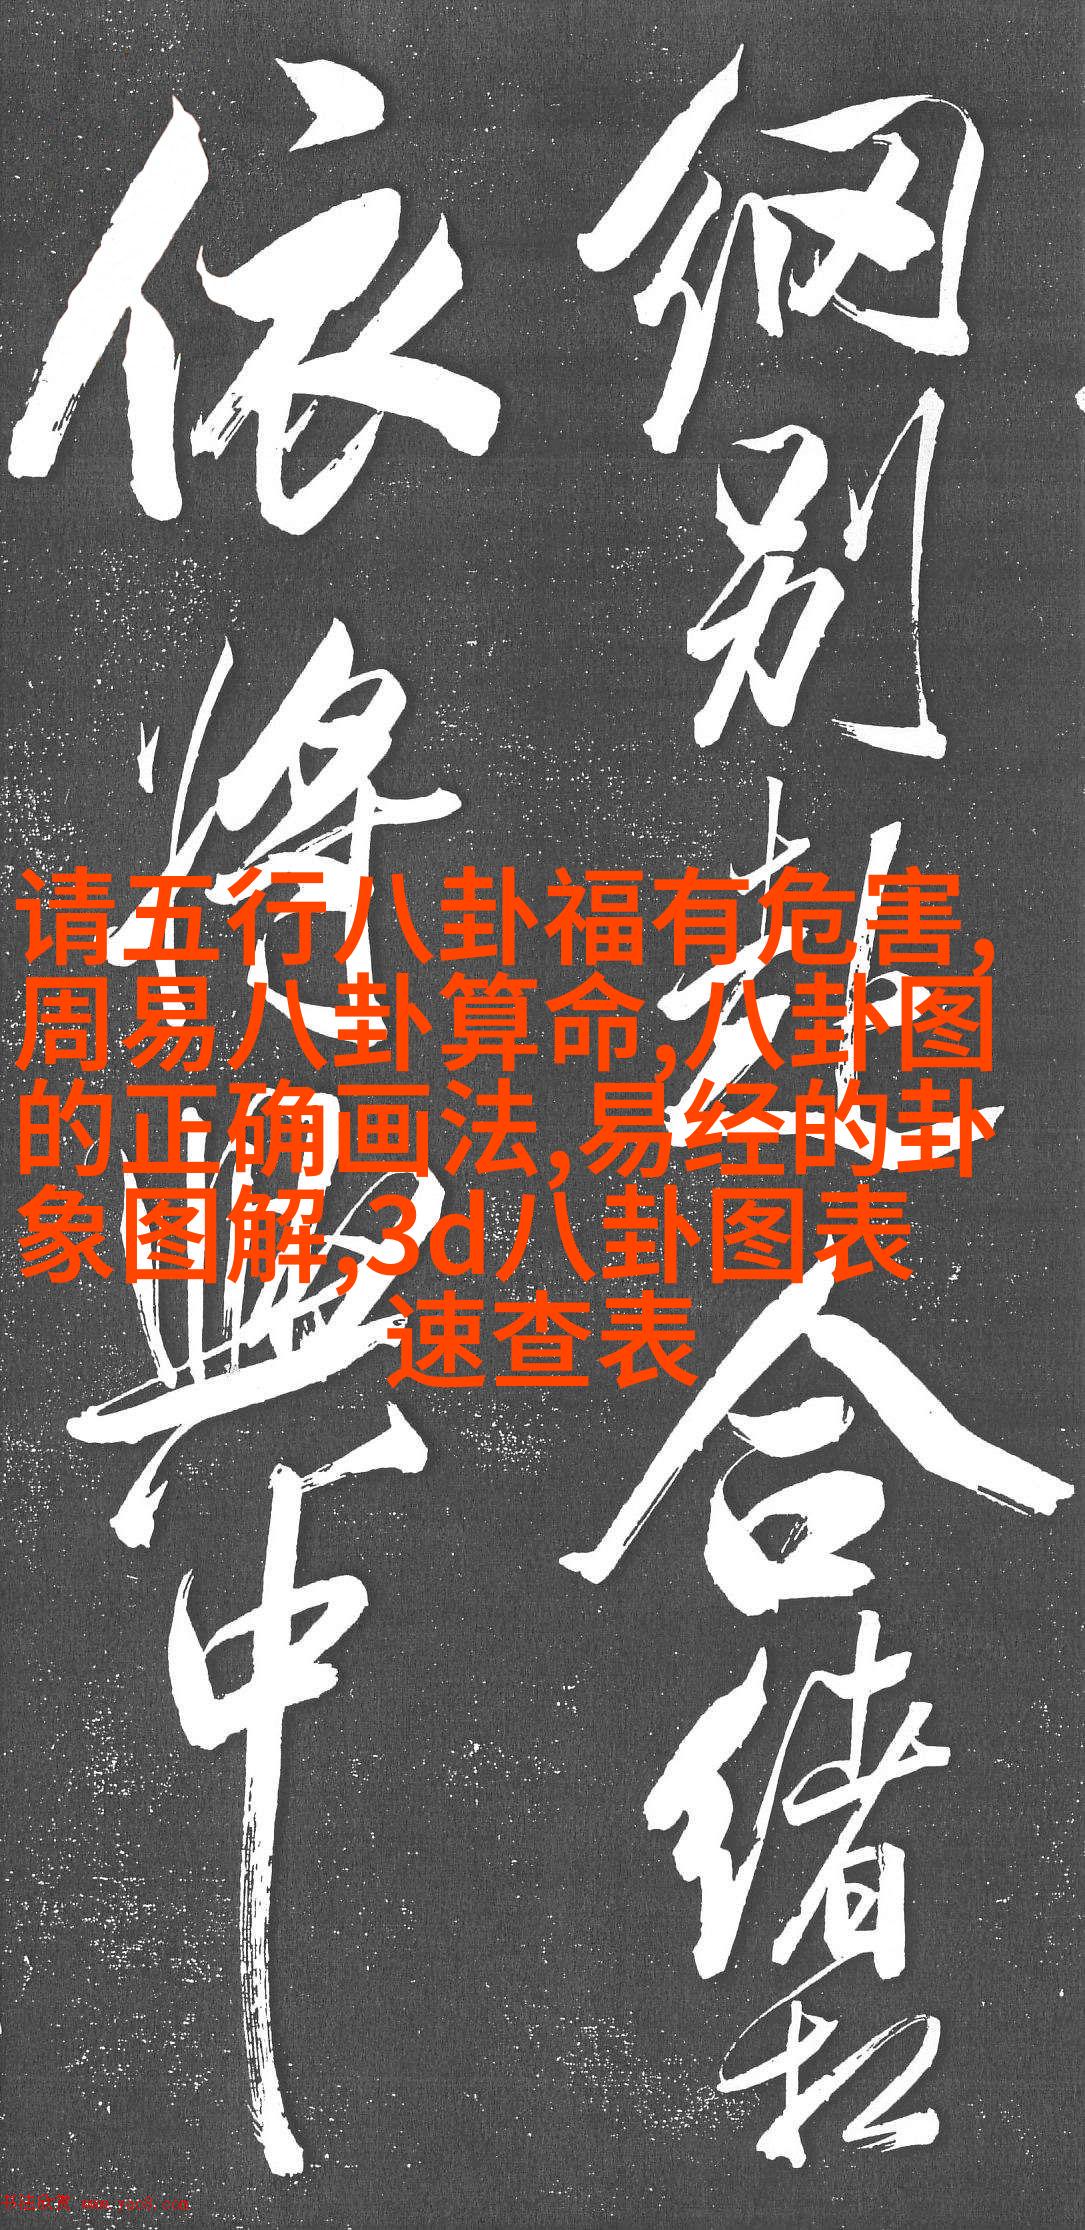 请五行八卦福有危害,
周易八卦算命,八卦图
的正确画法,易经的卦
象图解,3d八卦图表
速查表
别
合
绪
依
将
中
书法欣赏 www.yac8.com